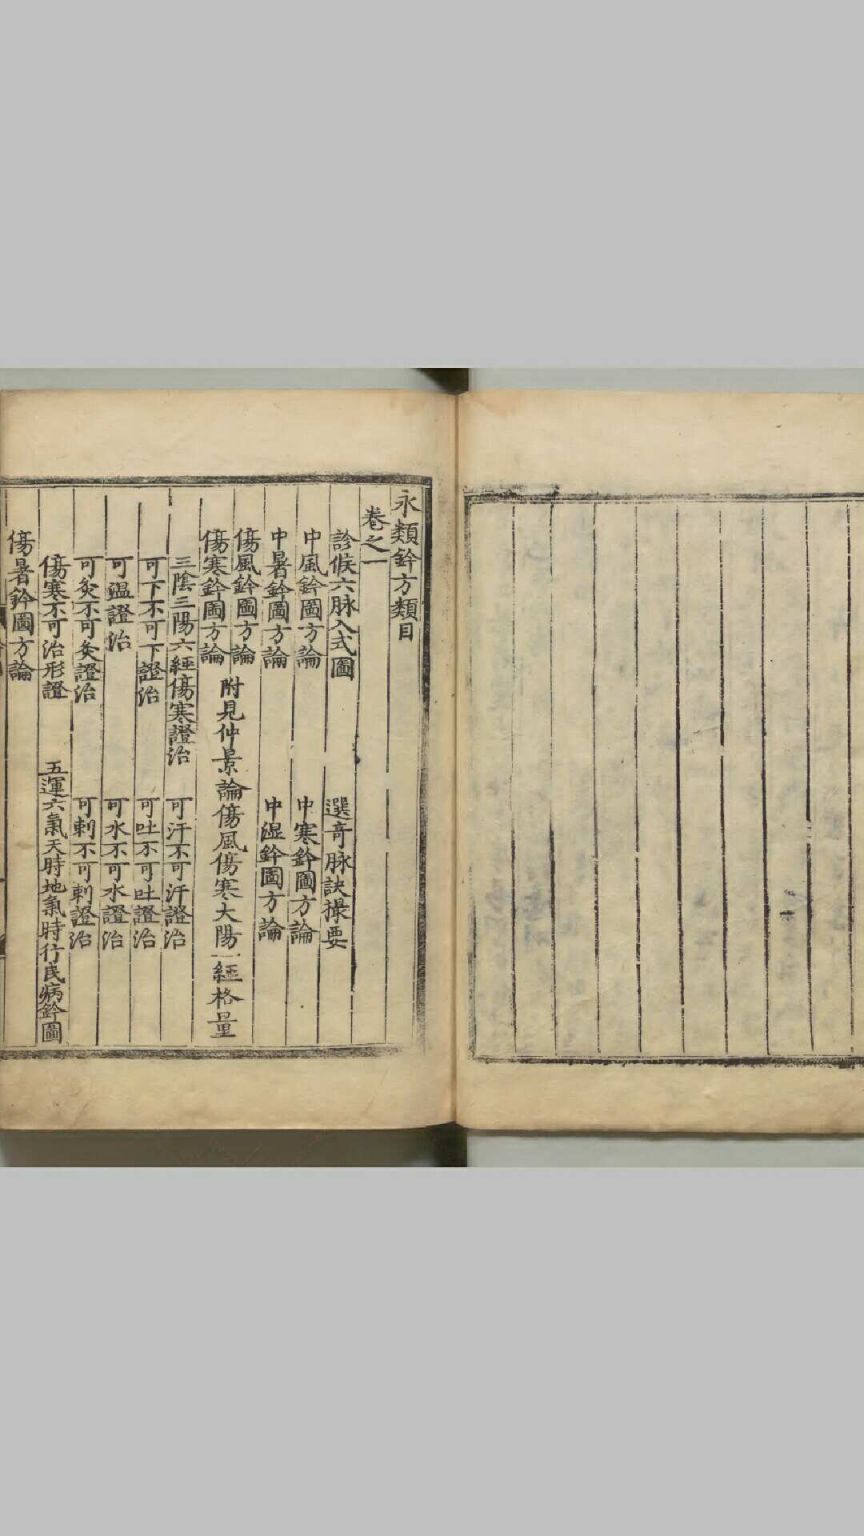 永類鈐方類目
卷之一
診候六脉入式圖 選奇脉訣撮要
中風鈐圖方論 中寒鈐圖方論
中暑鈐圖方論 中湿鈐圖方論
傷風鈐圖方論
附見仲景論傷風傷寒大陽一經格量
傷寒鈐圖方論
三陰三陽六經傷寒證治 可汗不可汗證治
可下不可下證治 可吐不可吐證治
可温證治 可水不可水證治
可灸不可灸證治 可刺不可刺證治
傷寒不可治形證 五運六氣天時地氣時行民病鈐圖
傷暑鈐圖方論